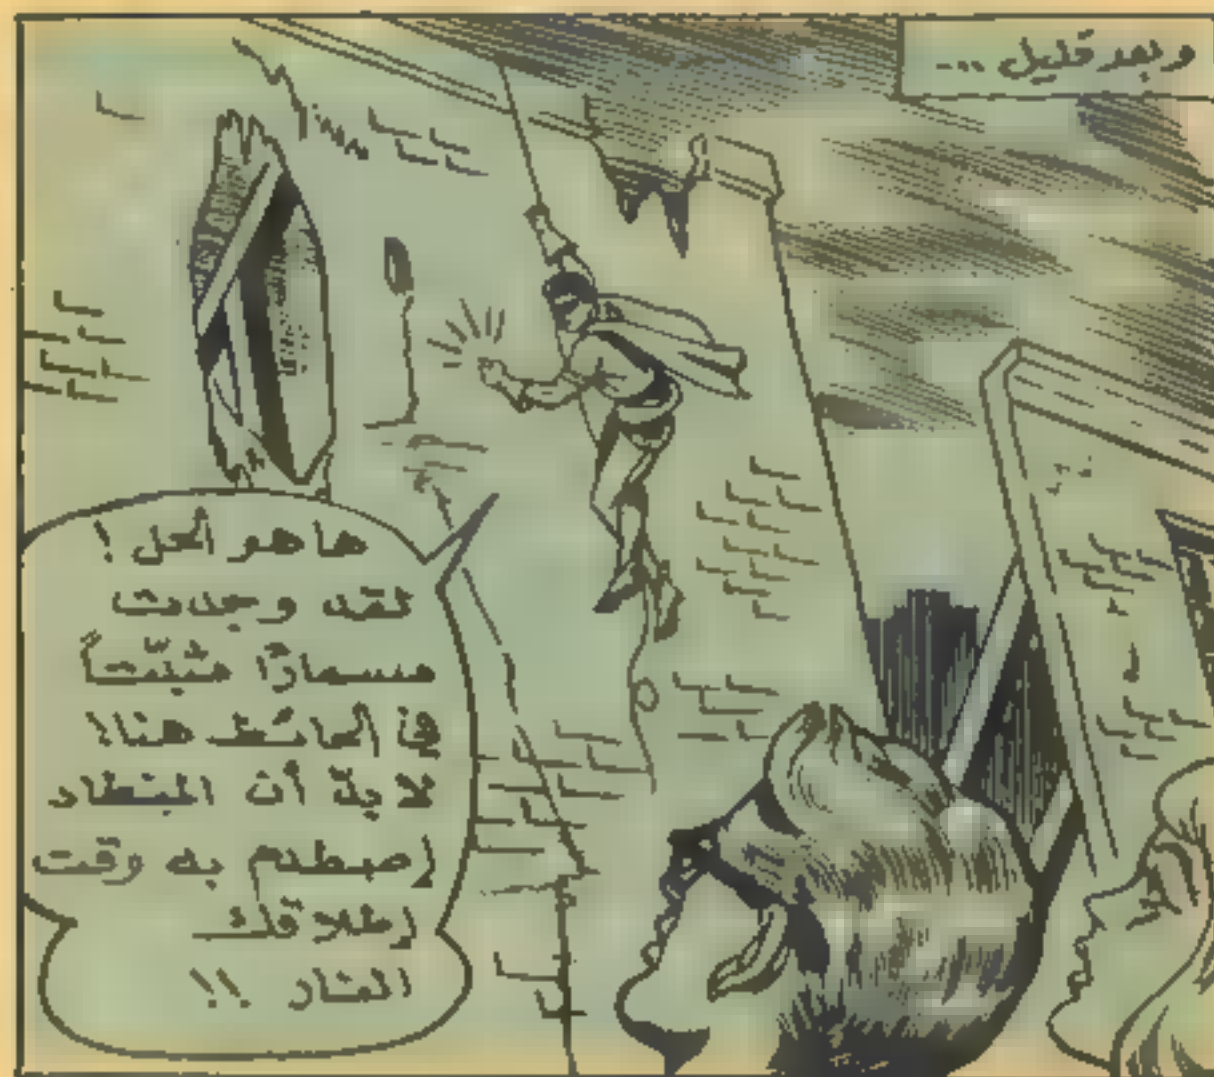 وبعد قليل ...
ها هو الحل !
لقد وجدت
مسمارًا مثبّتاً
في الحائط هنا!
لا بدّ أن المنطاد
إصطدم به وقت
إطلاقك
النار !!